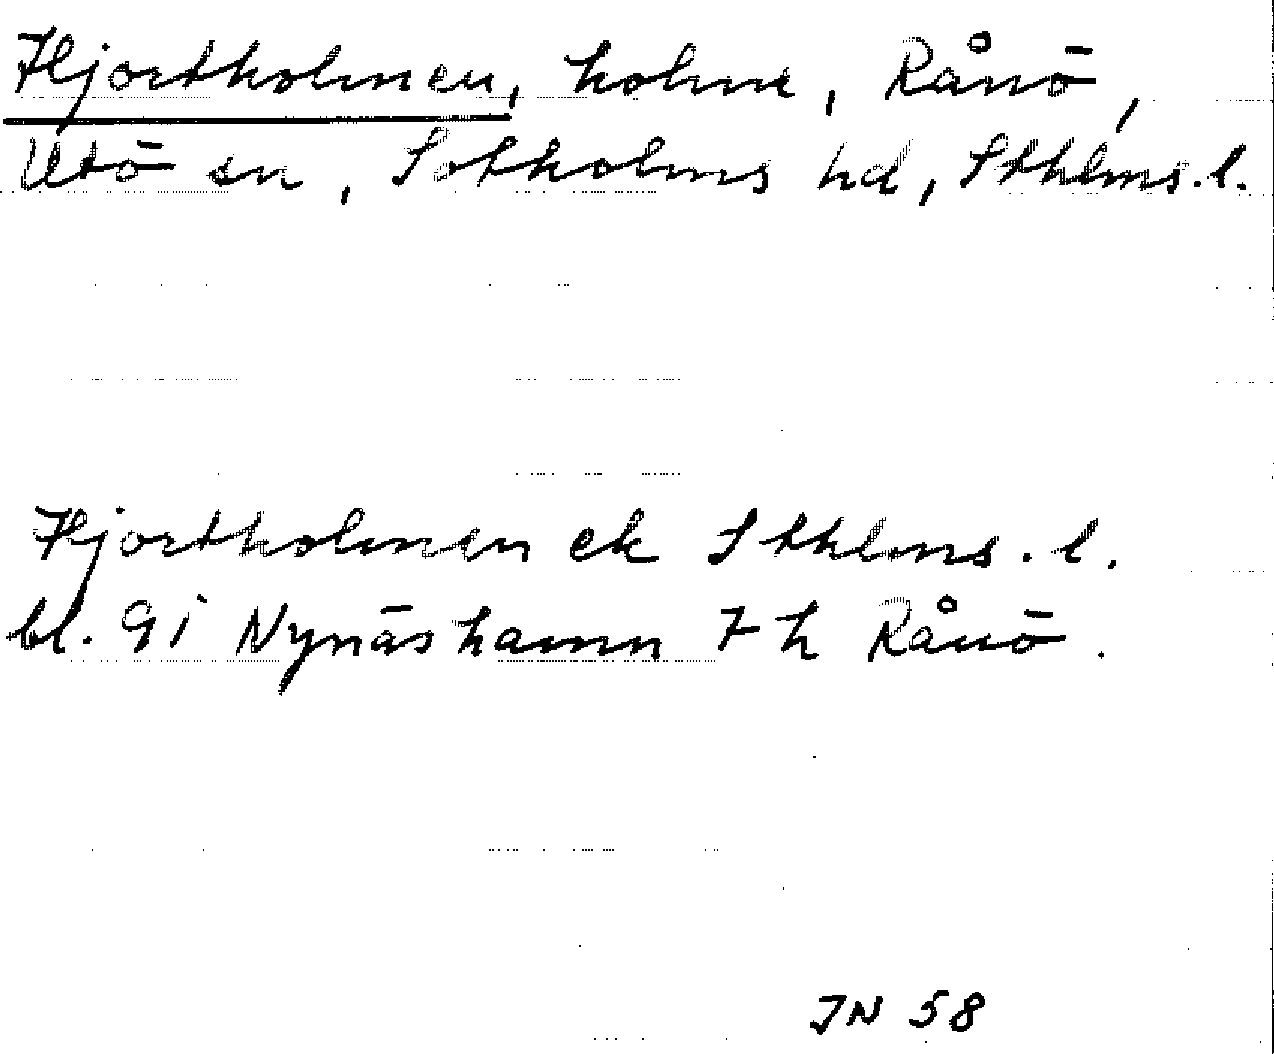 Hjortholmen, holme, Rånö,
Utö sn, Sotholms hd, Sthlms.l.
Hjortholmen ek Sthlms.l.
bl. 91 Nynäshamn 7 h Rånö.
JN 58